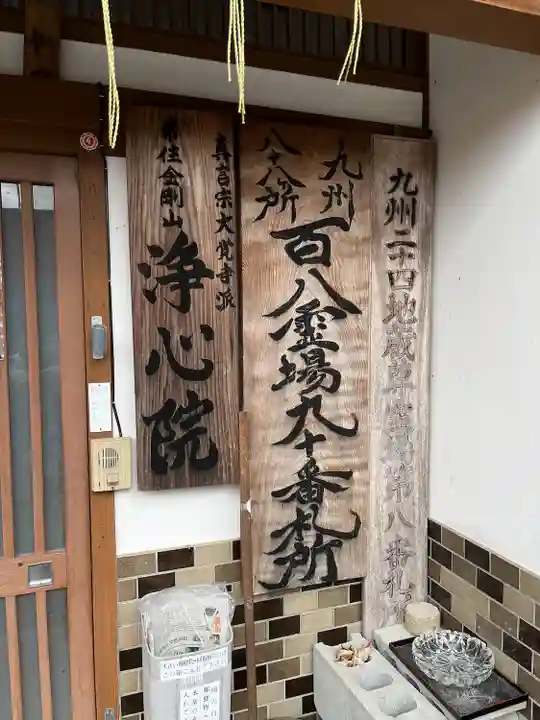 真言宗大覚寺派
常住金剛山
浄心院
九州
八十八所
百八霊場九十番札所
九州二十四地蔵尊霊場第八番札所